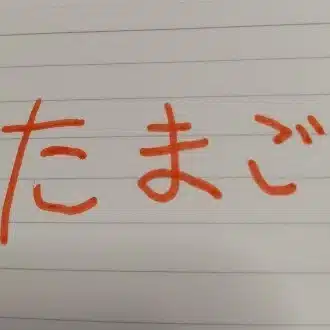 たまご